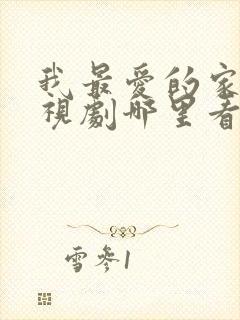 我最爱的家
視劇哪里看
雪参1